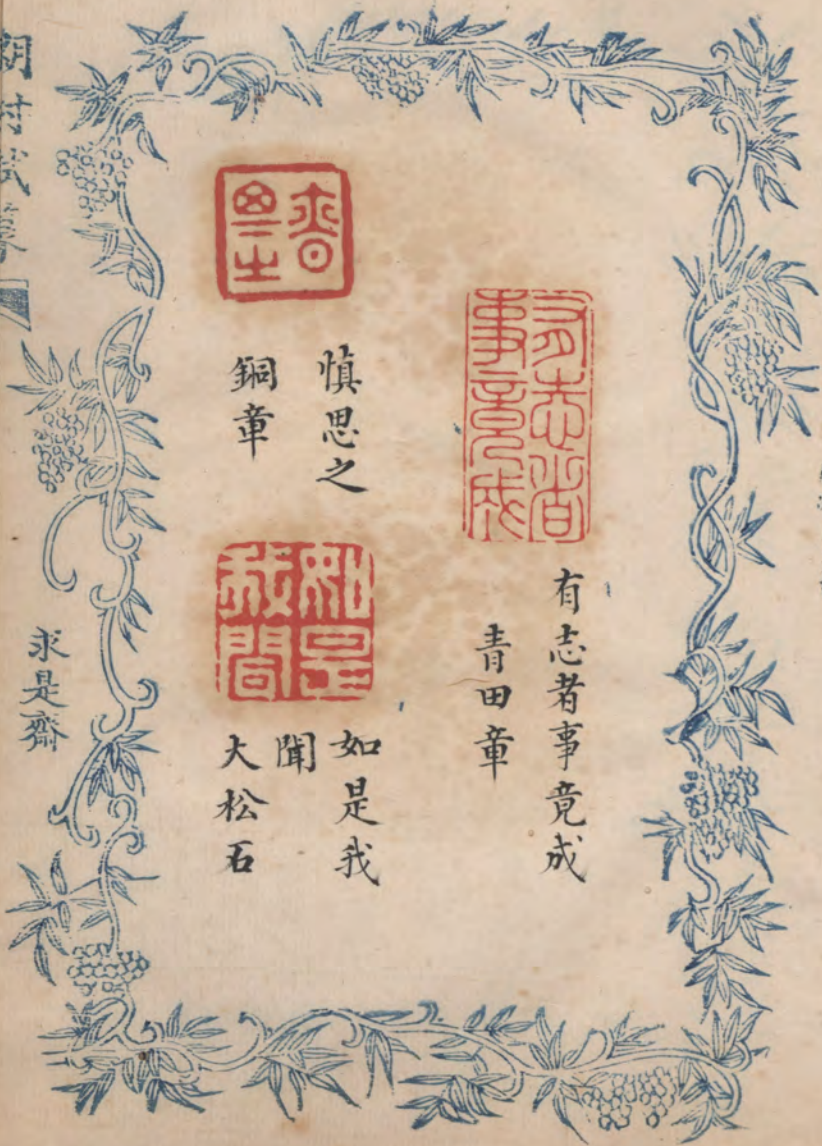 有志者
事竟成
有志者事竟成
青田章
昚
思之
慎思之
銅章
如是
我聞
如是我
聞
大松石
求是齋